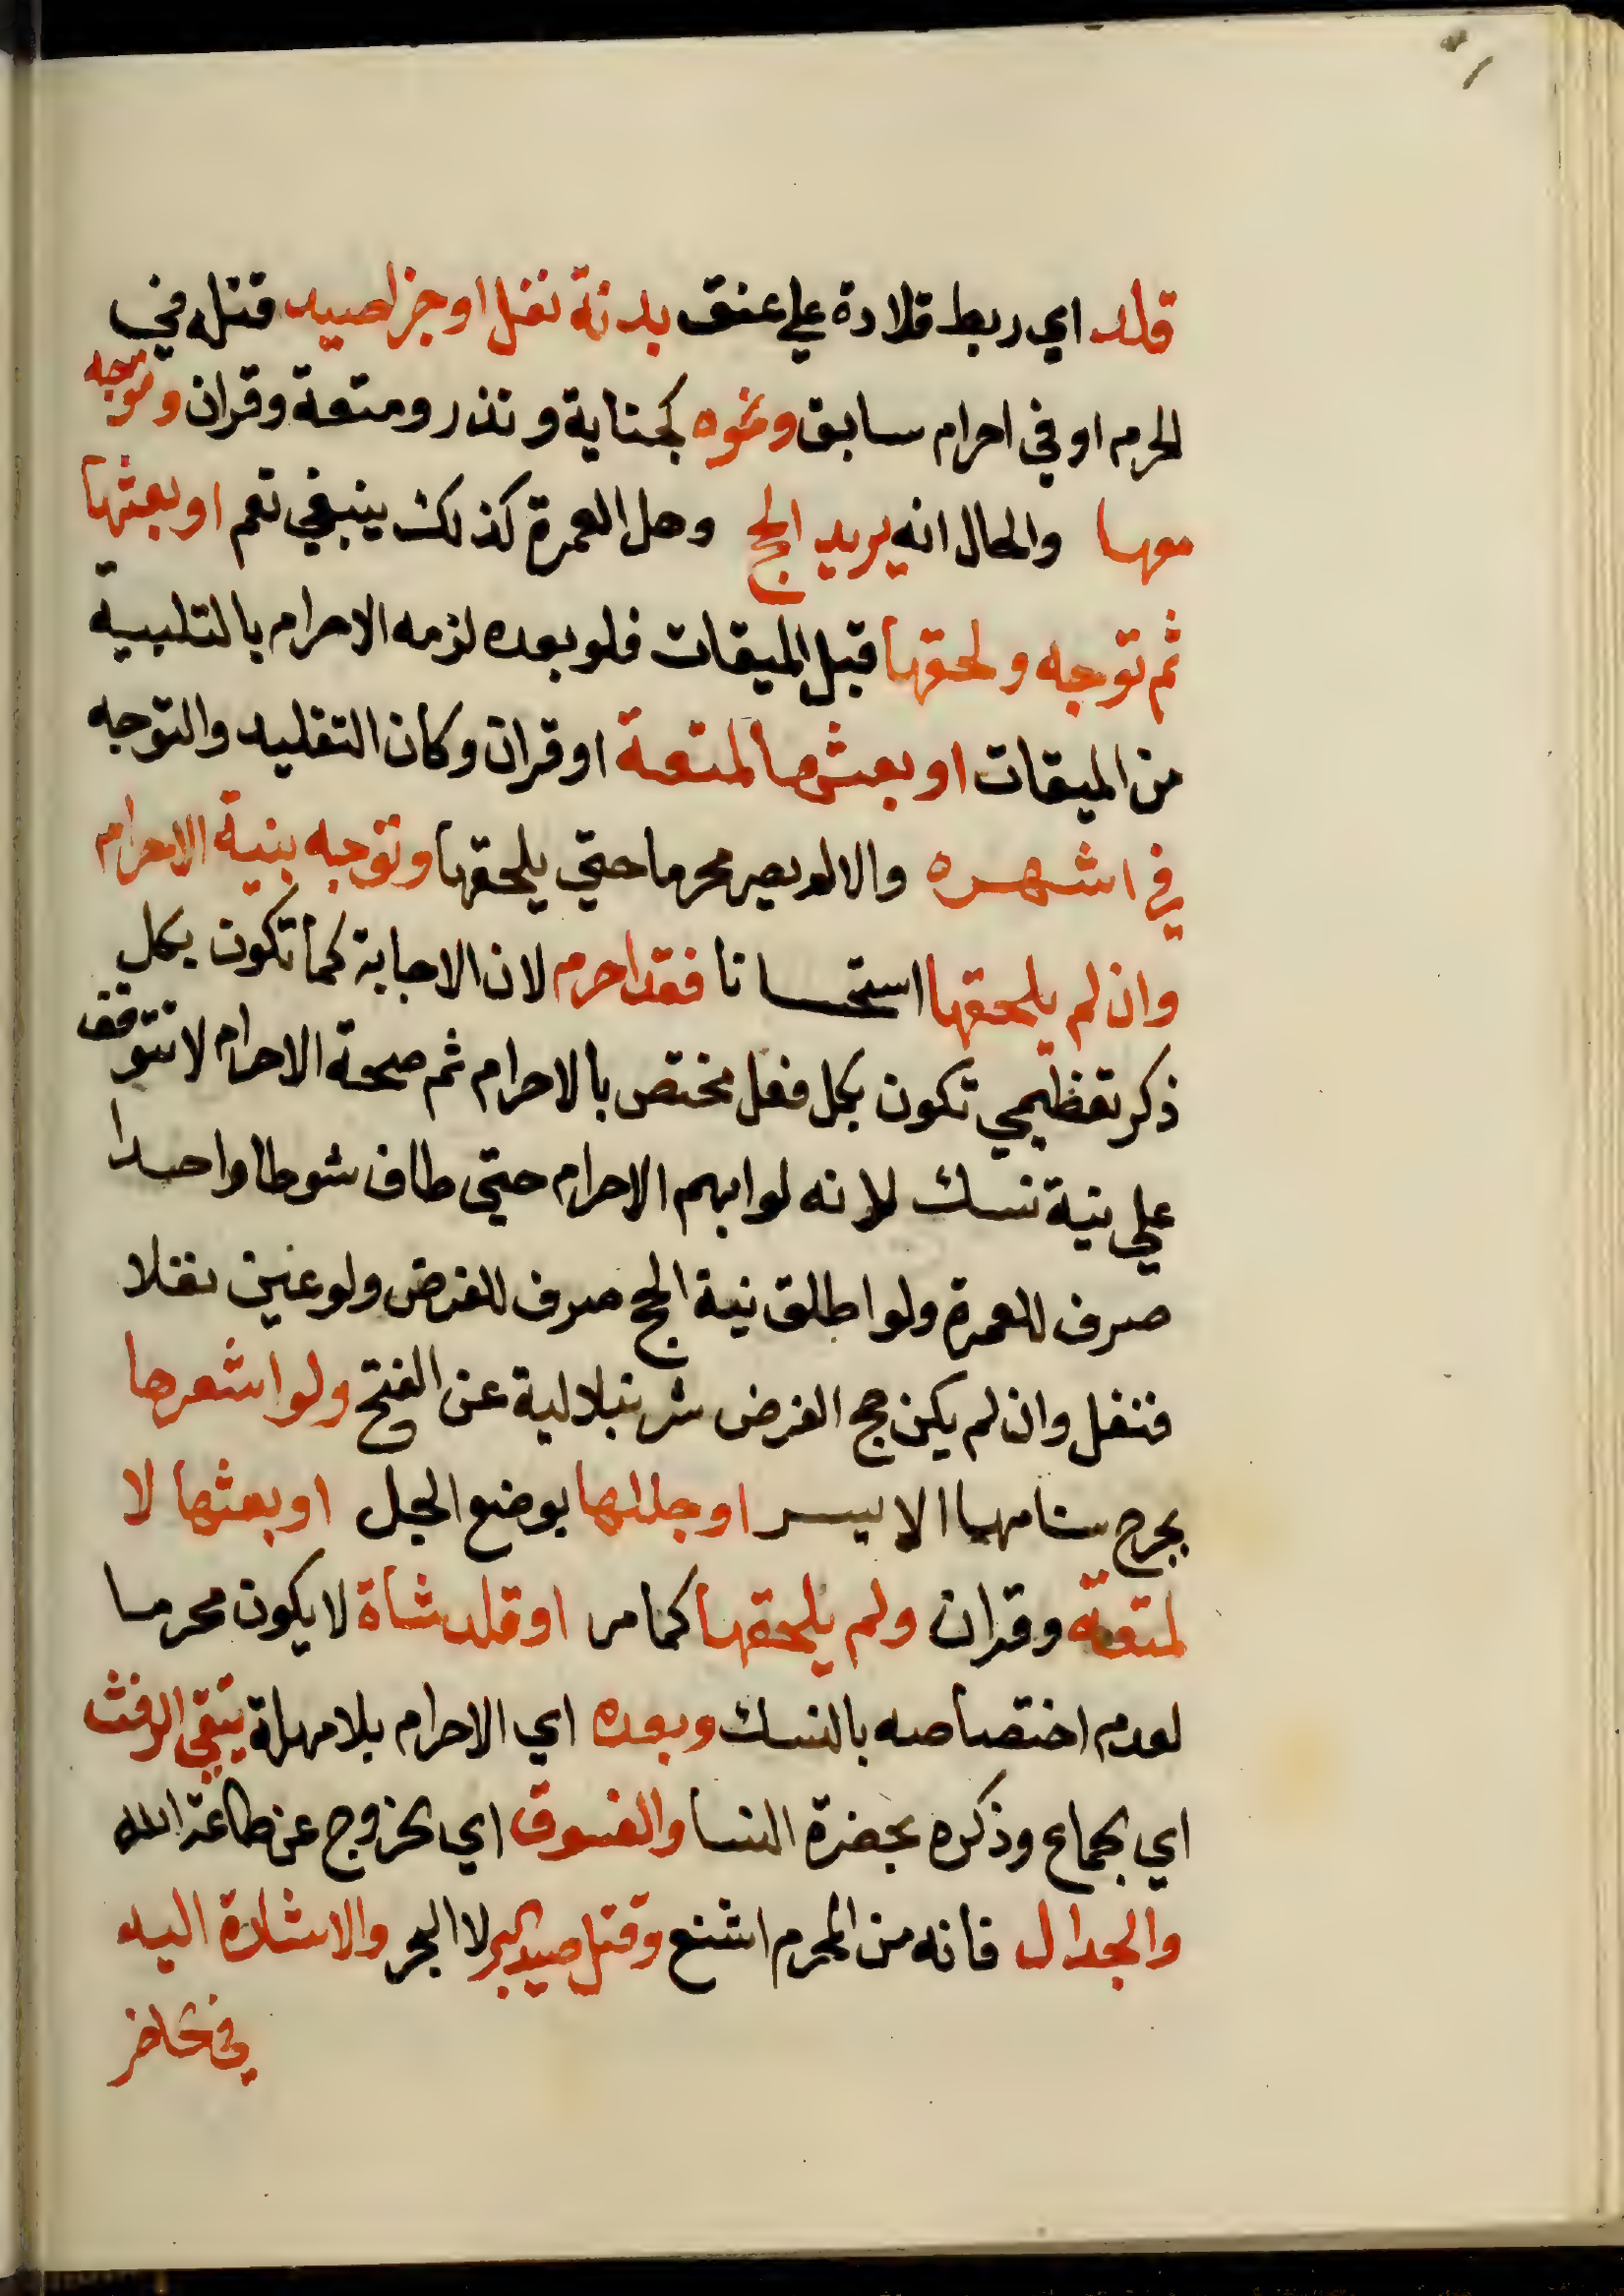 قلد اي ربط قلادة علي عنق بدنة نفل او جزا صيد قتله في
الحرم او في احرام سابق ونحوه كجناية ونذر ومتعة وقران وتوجه
معها والحال انه يريد الحج وهل العمرة كذلك ينبغي نعم او بعثها
ثم توجه ولحقها قبل الميقات فلو بعده لزمه الاحرام بالتلبية
من الميقات او بعثها لمتعة او قران وكان التقليد والتوجه
في اشهره والا لم يصر محرما حتي يلحقها وتوجه بنية الاحرام
وان لم يلحقها استحسانا فقد احرم لان الاجابة كما تكون بكل
ذكر تعظيمي تكون بكل فعل مختص بالاحرام ثم صحة الاحرام لا تتوقف
علي نية نسك لانه لو ابهم الاحرام حتي طاف شوطا واحدا
صرف للعمرة ولو اطلق نية الحج صرف للفرض ولو عين نفلا
فنفل وان لم يكن حج الفرض شرنبلالية عن الفتح ولو اشعرها
بجرح سنامها الايسر او جللها بوضع الجل او بعثها لا
لمتعة وقران ولم يلحقها كما مر او قلد شاة لا يكون محرما
لعدم اختصاصه بالنسك وبعده اي الاحرام بلا مهلة يتقي الرفث
اي الجماع وذكره بحضرة النسا والفسوق اي الخروج عن طاعة الله
والجدال فانه من المحرم اشنع وقتل صيد البر لا البحر والاشارة اليه
في الحاضر